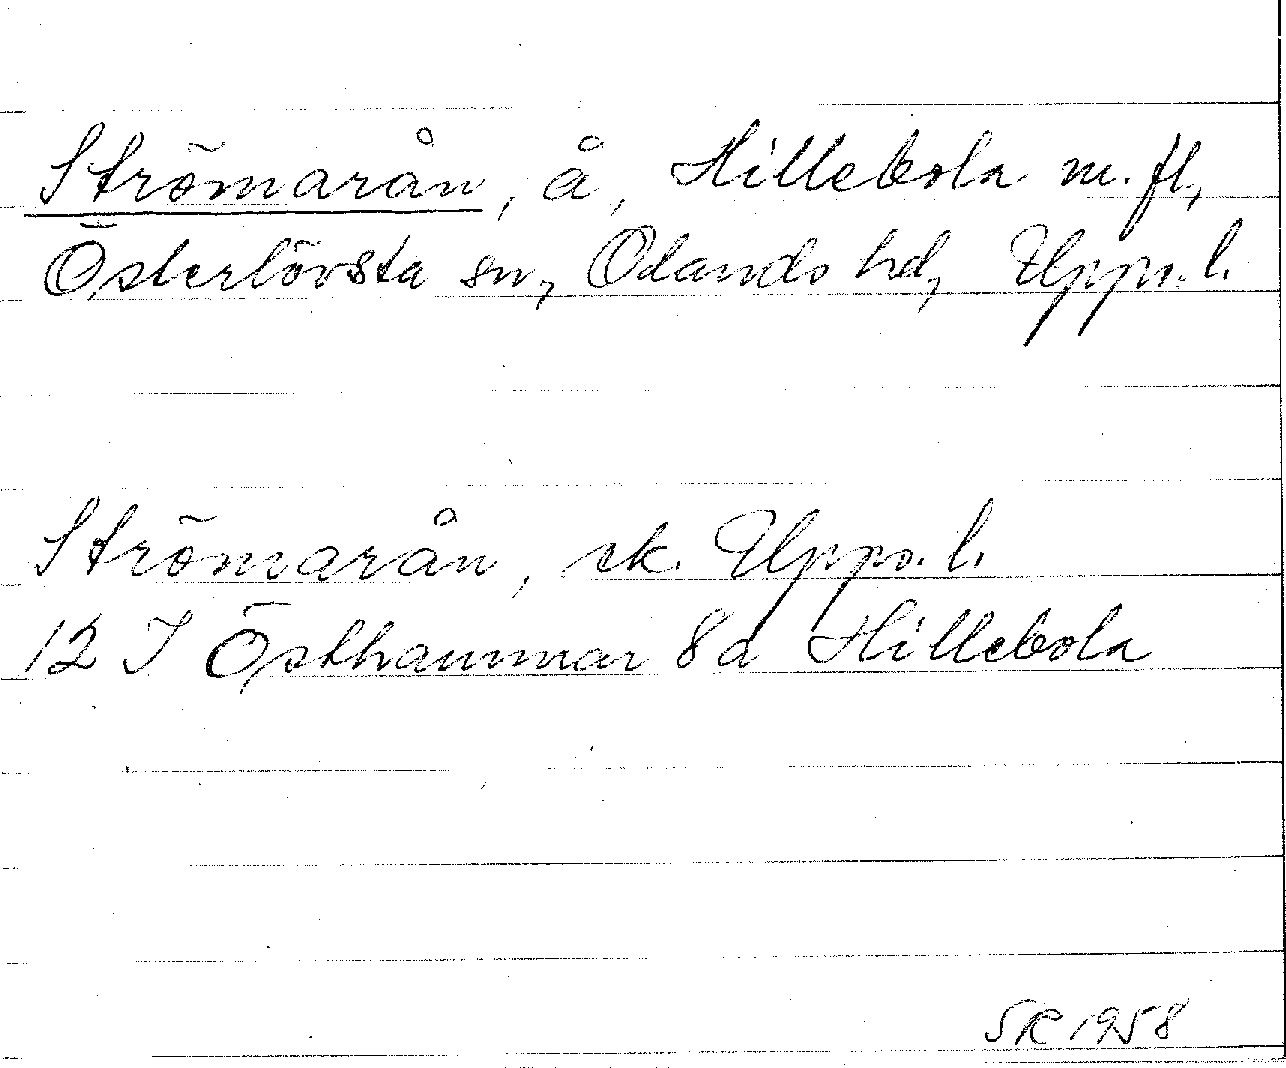 Strömarån, å, Hillebola m.fl,
Österlövsta sn, Olands hd, Upps. l.
Strömarån, ek. Upps. l.
12 I Östhammar 8d Hillebola
SR 1958